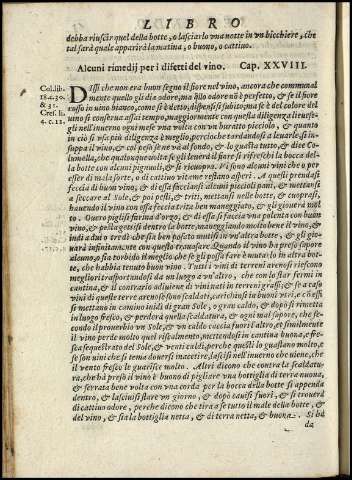 LIBRO
debba riuscir quel della botte, o lasciarlo vna notte in vn bicchiere, che
tal sarà quale apparirà la matina, o buono, o cattiuo.
Alcuni rimedij per i difetti del vino. Cap. XXVIII.
Col. lib.
18. c. 30.
& 31.
Cres. li.
4. c. 22.
Dissi che non era buon segno il fiore nel vino, ancora che communal
mente quello gli dia odore, ma
se il fiore
co in vino bianco, come si è detto, dispensisi subito; ma se è del colore del
uino si conserua assai tempo, maggiormente con questa diligenza
gli nell'inuerno ogni mese vna volta con vn buratto picciolo, & quanto
in ciò si vsa più diligenza è meglio, perche
il vino, & col peso se ne và al fondo, & lo guasta tutto, & dice Co-
lumella, che quantunque volta se gli leuerà il fiore si rifreschi la bocca del-
la botte con alcuni pignuoli, & si ricuopra. Vi sono alcuni vini che o per
esser di mala sorte, o di cattiuo vitame restano asperi. A questi prendasi
feccia di buon vino, & di essa facciansi alcuni piccioli pani, & mettansi
a seccare al Sole, & poi pesti, & triti, mettasi nelle botte, & cuoprasi,
hauendo il vino con essa
to. Ouero piglisi farina d'orgo, & di essa si faccia vna polenta con buon
vino, & pesta gettisi dentro la botte, maneggiando molto bene il vino, &
indi a dui o tre dì che sia ben posato mutisi in un'altra botte, & gli gio-
uerà infinitamente con questo trauasare. Quando il vino hà preso sapore
alcuno, o sia torbido il meglio che se gli possa fare è mutarlo in altra bot-
te, che habbia tenuto buon vino. Tutti i vini di terreni arenosi riescono
migliori trasportandosi da un luogo a vn'altro, che con lo star fermi in
cantina, & il contrario adiuiene di vini nati in terreni grassi; & se a caso
vini di quelle terre arenose sono scaldati, carichinsi in buoni vtri, e con essi
si mettano in camino inãzi di gran Sole, o gran caldo, & dopo si rimetta
in luogo fresco, & perderà quella scaldatura, & ogni mal sapore, che se-
condo il prouerbio vn Sole, & vn caldo caccia fuori l'altro, et similmente
il vino perde molto quel riscaldamento, mettendosi in cantina buona, e fre-
sca sequestrato del Sole, & venti caldi, perche questi lo guastano molto, &
se son vini che si tema douersi inacetire, lascisi nell'inuerno che uiene, che
il vento fresco lo guarisce molto. Altri dicono che contra la scaldatu-
ra, che hà preso il vino è buono di pigliare vna bottiglia di terra nuoua,
& serrata bene volta con vna corda per la bocca della botte si appenda
dentro, & lasciuisi stare vn giorno, & dopo cauisi fuori, & si trouerà
di cattiuo odore, perche dicono che tira a se tutto il male della botte, &
del vino, & sia la bottiglia netta, & di terra netta, & buona. Si hà
da